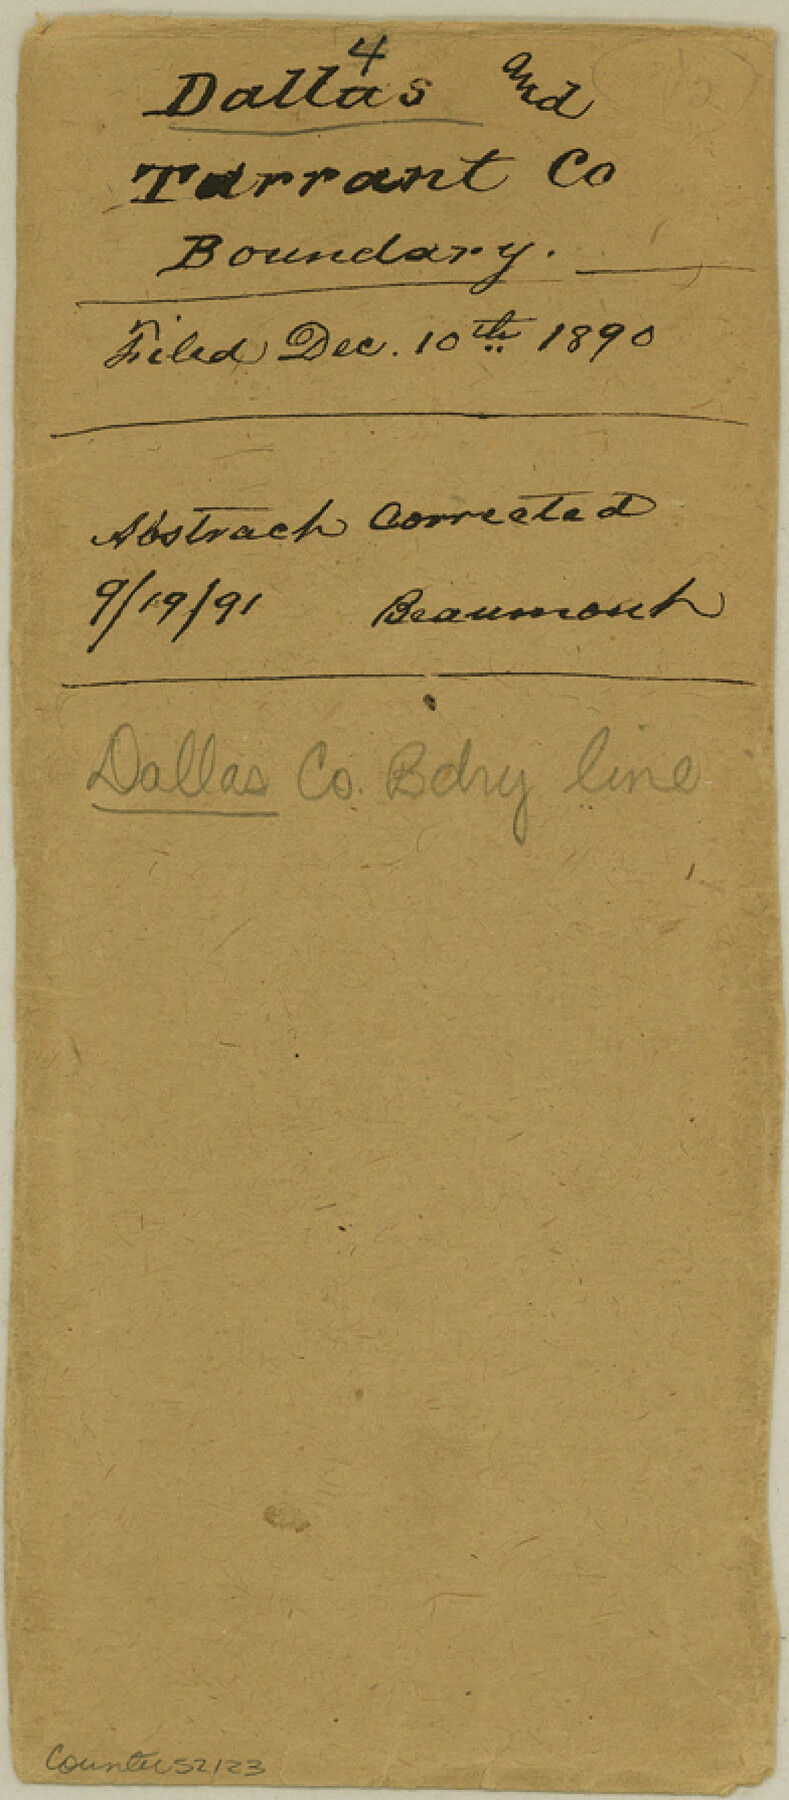 4
Dallas and
Tarrant Co
Boundary.
Filed Dec. 10th 1890
Abstract Corrected
9/19/91 Beaumont
Dallas Co. Bdry line
Counter 52123